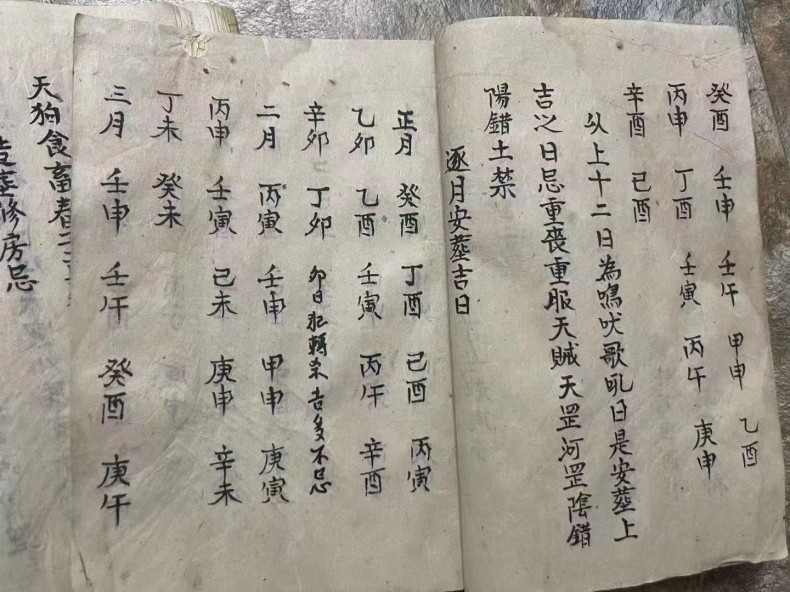 癸酉 壬申 壬午 甲申 乙酉
丙申 丁酉 壬寅 丙午 庚申
辛酉 己酉
以上十二日為鳴吠歌吼日是安葬上
吉之日忌重喪重服天賊天罡河罡陰錯
陽錯土禁
逐月安葬吉日
正月 癸酉 丁酉 己酉 丙寅
乙卯 乙酉 壬寅 丙午 辛酉
辛卯 丁卯 卯日犯轉杀吉多不忌
二月 丙寅 壬申 甲申 庚寅
丙申 壬寅 己未 庚申 辛未
丁未 癸未
三月 壬申 壬午 癸酉 庚午
天狗食畜春
葬修房忌